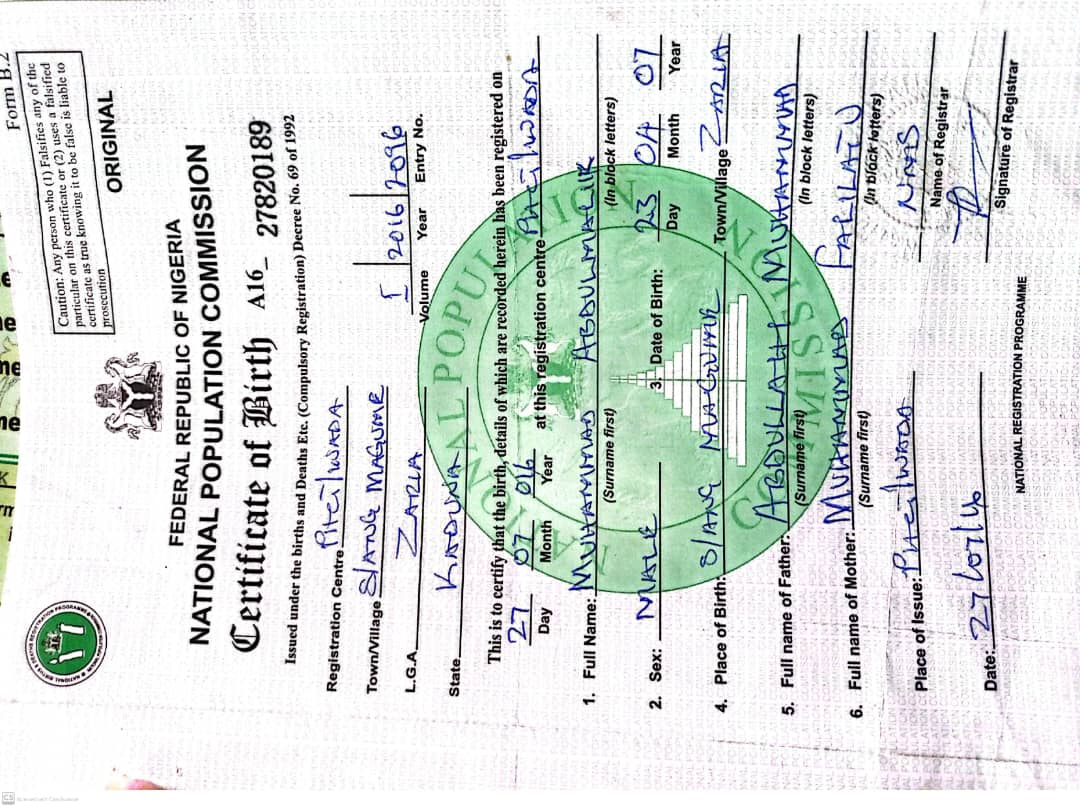 Form B.2
Caution: Any person who (1) Falsifies any of the
particular on this certificate or (2) uses a falsified
certificate as true knowing it to be false is liable to
prosecution
ORIGINAL
FEDERAL REPUBLIC OF NIGERIA
NATIONAL POPULATION COMMISSION
Certificate of Birth A16_ 27820189
Issued under the births and Deaths Etc. (Compulsory Registration) Decree No. 69 of 1992
Registration Centre
Town/Village S/ANG MAGUME
L.G.A. ZARIA I 2016 2096
Volume Year Entry No.
State KADUNA
NATIONAL POPULATION COMMISSION
This is to certify that the birth, details of which are recorded herein has been registered on
27 07 016 at this registration centre
Day Month Year
1. Full Name: MUHAMMAD ABDULMALIK
(Surname first) (In block letters)
2. Sex: MALE 3. Date of Birth: 23 04 07
Day Month Year
4. Place of Birth: S/ANG MAGUME Town/Village ZARIA
5. Full name of Father: ABDULLAHI MUHAMMAD
(Surname first) (In block letters)
6. Full name of Mother: MUHAMMAD
(Surname first) (In block letters)
Place of Issue:
Name of Registrar
Date:
Signature of Registrar
NATIONAL REGISTRATION PROGRAMME